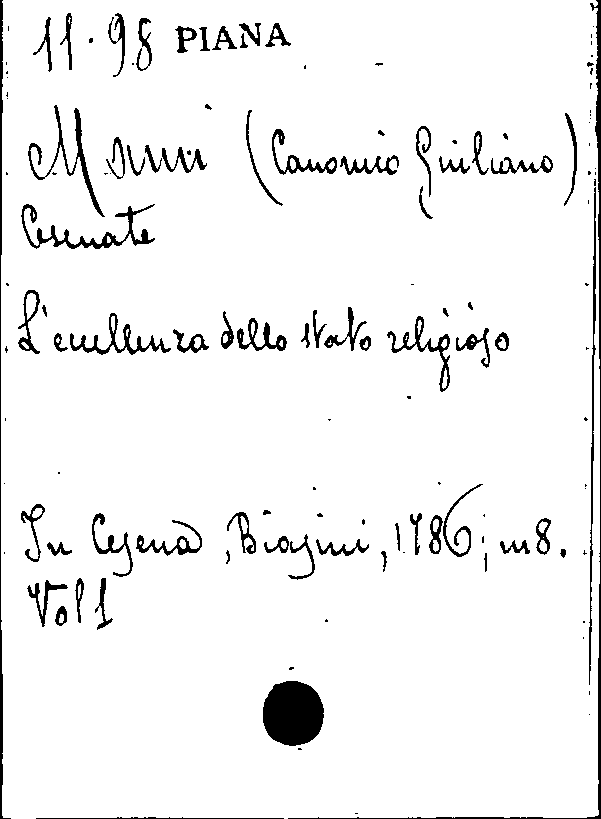 11.98 PIANA
Manni (Canonico Giuliano)
Cesenate
L'eccellenza dello stato religioso
In Cesena, Biasini, 1786; in 8.
Vol 1